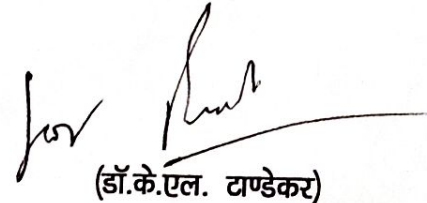 for
(डॉ.के.एल. टाण्डेकर)